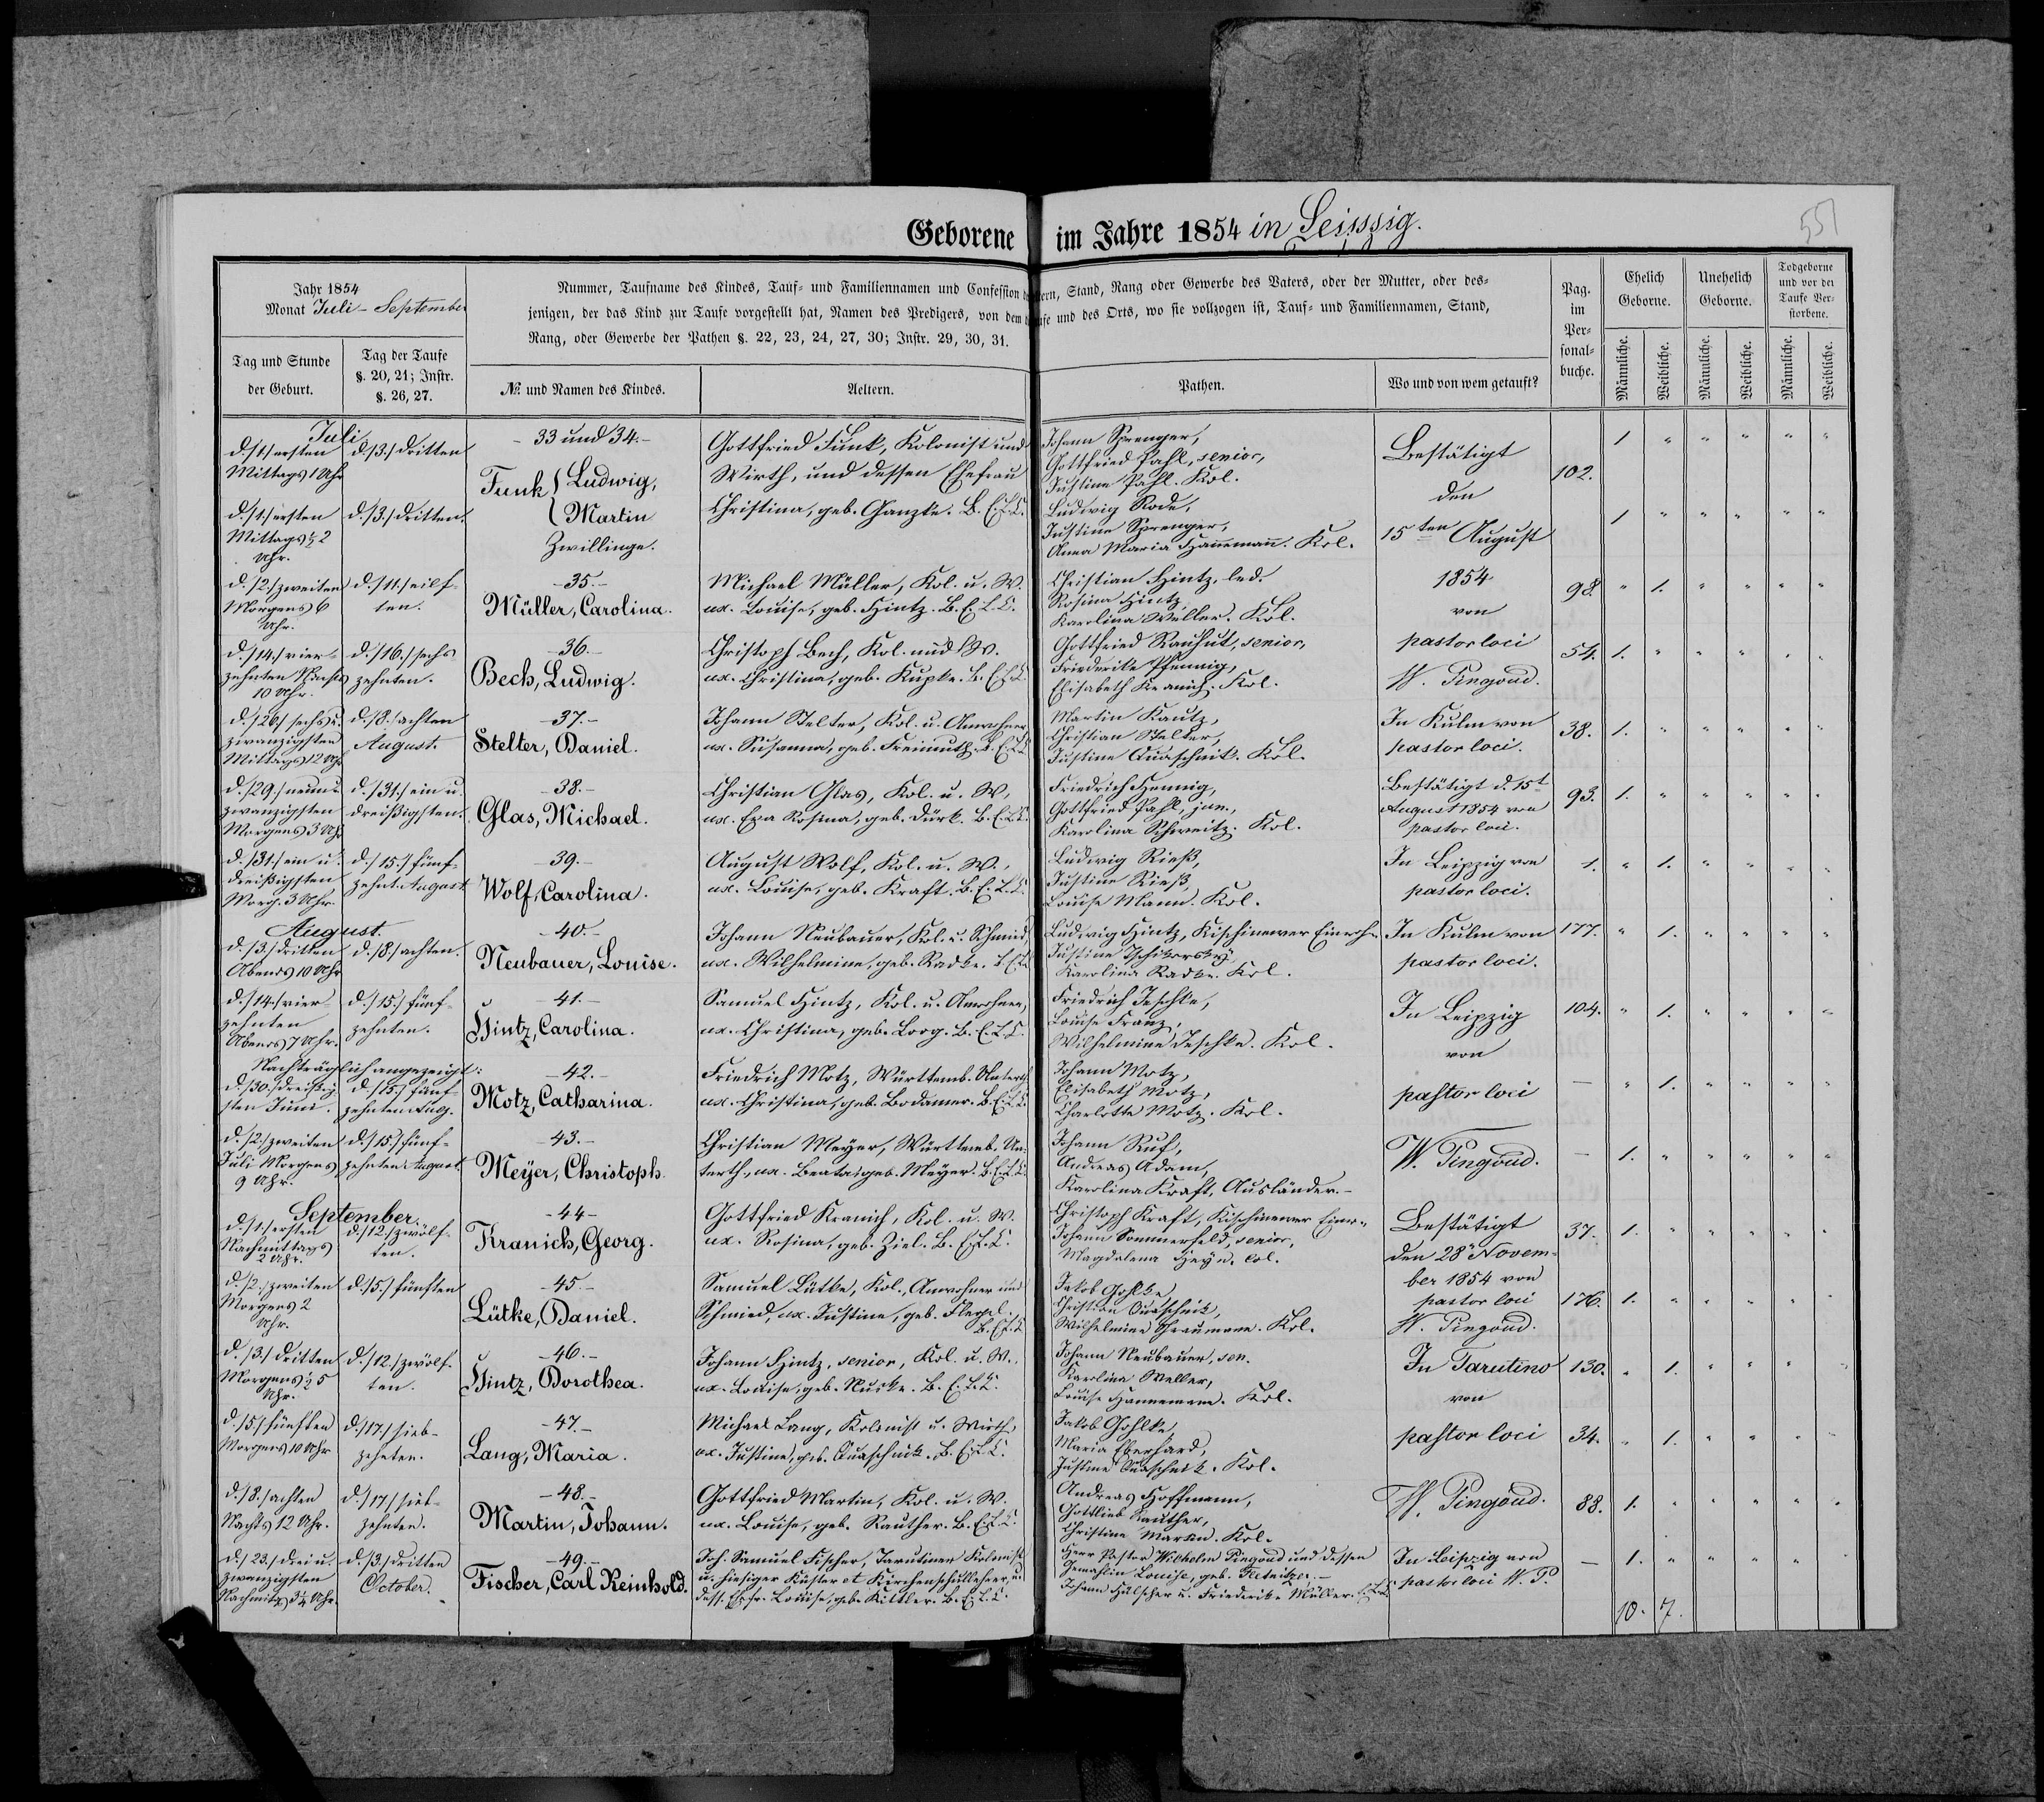 Geborene im Jahre 1854 in Leipzig.
551
Jahr 1854
Monat Juli - September
Tag und Stunde
der Geburt.
Tag der Taufe
§. 20, 21; Instr.
§. 26, 27.
Nummer, Taufname des Kindes, Tauf- und Familiennamen und Confession
ltern, Stand, Rang oder Gewerbe des Vaters, oder der Mutter, oder des-
jenigen, der das Kind zur Taufe vorgestellt hat, Namen des Predigers, von dem
und des Orts, wo sie vollzogen ist, Tauf- und Familiennamen, Stand,
Rang, oder Gewerbe der Pathen §. 22, 23, 24, 27, 30; Instr. 29, 30, 31.
№ und Namen des Kindes.
Aeltern.
Pathen.
Wo und von wem getauft?
Pag.
im
Per-
sonal-
buche.
Ehelich
Geborne.
Unehelich
Geborne.
Todgeborne
und vor der
Taufe Ver-
storbene.
Männliche.
Weibliche.
Männliche.
Weibliche.
Männliche.
Weibliche.
Juli
d. /1./ ersten
Mittags 1 Uhr
d. /3./ dritten
- 33 und 34. -
Funk { Ludwig,
Gottfried Funk, Kolonist und
Wirth, und dessen Ehefrau
Christina, geb. Ganzke. B. E. L. C.
Johann Sprenger,
Gottfried Pahl, senior,
Justine Pahl. Kol.
Bestätigt
den
102.
1 " " " " "
d. /1./ ersten
Mittags ½ 2
Uhr.
d. /3./ dritten.
{ Martin
Zwillinge.
Ludwig Rode,
Justine Sprenger,
Anna Maria Hannemann. Kol.
15ten August
1 " " " " "
d. /2./ zweiten
Morgens 6
Uhr.
d. /11./ eilf-
ten.
- 35. -
Müller, Carolina.
Michael Müller, Kol. u. W.
ux. Louise, geb. Hintz. B. E. L. C.
Christian Hintz, led.
Rosina Hintz,
Karolina Müller. Kol.
1854
von
98.
" 1. " " " "
d. /14./ vier-
zehnten Nachts
10 Uhr.
d. /16./ sechs
zehnten.
- 36. -
Bech, Ludwig.
Christoph Bech, Kol. und W.
ux. Christina, geb. Kupke. B. E. L. C.
Gottfried Rauhut, senior,
Friederike Pfennig,
Elisabeth Kranich. Kol.
pastor loci
W. Pingoud.
54.
1. " " " " "
d. /26./ sechs u.
zwanzigsten
Mittags 12 Uhr
d. /8./ achten
August.
- 37. -
Stelter, Daniel.
Johann Stelter, Kol. u. Anwohner
ux. Susanna, geb. Freimuth. B. E. L. C.
Martin Kautz,
Christian Stelter,
Justine Quaschnik. Kol.
In Kulm von
pastor loci.
38.
1. " " " " "
d. /29./ neun u.
zwanzigsten
Morgens 3 Uhr
d. /31./ ein u.
dreißigsten.
- 38. -
Glas, Michael.
Christian Glas, Kol. u. W.
ux. Eva Rosina, geb. Dürk. B. E. L. C.
Friedrich Hennig,
Gottfried Pahl, jun.,
Karolina Schweitz. Kol.
Bestätigt d. 15t
August 1854 von
pastor loci.
93.
1. " " " " "
d. /31./ ein u.
dreißigsten
Morg. 3 Uhr.
d. /15./ fünf-
zehnt. August.
- 39. -
Wolf, Carolina.
August Wolf, Kol. u. W.,
ux. Louise, geb. Kraft. B. E. L. C.
Ludwig Rieß,
Justine Rieß,
Louise Mann. Kol.
In Leipzig von
pastor loci.
1.
" 1. " " " "
August.
d. /3./ dritten
Abends 10 Uhr
d. /8./ achten.
- 40. -
Neubauer, Louise.
Johann Neubauer, Kol. u. Schmid,
ux. Wilhelmine, geb. Radke. B. E. L. C.
Ludwig Hintz, Kischinewer Einwohn.
Justine
Karolina Radke. Kol.
In Kulm von
pastor loci.
177.
" 1. " " " "
d. /14./ vier
zehnten
Abends 7 Uhr.
d. /15./ fünf-
zehnten.
- 41. -
Hintz, Carolina.
Samuel Hintz, Kol. u. Anwohner,
ux. Christina, geb. Lorg. B. E. L. C.
Friedrich Jeschke,
Louise Franz,
Wilhelmine Jeschke. Kol.
In Leipzig
von
104.
" 1. " " " "
Nachträglich angezeigt:
d. /30./ dreißig
sten Juni.
d. /15./ fünf-
zehnten Aug.
- 42. -
Motz, Catharina.
Friedrich Motz, Württemb. Unterth.
ux. Christina, geb. Bodamer. B. E. L. C.
Johann Motz,
Elisabeth Motz,
Charlotte Motz. Kol.
pastor loci
—
" 1. " " " "
d. /2./ zweiten
Juli Morgens
9 Uhr.
d. /15./ fünf-
zehnten August.
- 43. -
Meyer, Christoph.
Christian Meyer, Württemb. Un-
terth., ux. Beata, geb. Meyer. B. E. L. C.
Johann Ruf,
Andreas Adam,
Karolina Kraft, Ausländer. -
W. Pingoud.
—
1. " " " " "
September.
d. /1./ ersten
Nachmittags
2 Uhr.
d. /12./ zwölf-
ten.
- 44 -
Kranich, Georg.
Gottfried Kranich, Kol. u. W.
ux. Rosina, geb. Ziel. B. E. L. C.
Christoph Kraft, Kischinewer Einw.
Johann Sommerfeld, senior,
Magdalena Heyn. Col.
Bestätigt
den 28t Novem-
37.
1. " " " " "
d. /2./ zweiten
Morgens 2
Uhr.
d. /5./ fünften
- 45 -
Lütke, Daniel.
Samuel Lütke, Kol., Anwohner und
Schmied, ux. Justine, geb. Flegel.
B. E. L. C.
Jakob Gohlke,
Christian Quaschnik,
Wilhelmine Graumann. Kol.
ber 1854 von
pastor loci
W. Pingoud.
176.
1. " " " " "
d. /3./ dritten
Morgens ½ 5
Uhr.
d. /12./ zwölf-
ten.
- 46. -
Hintz, Dorothea.
Johann Hintz, senior, Kol. u. W.,
ux. Louise, geb. Nuske. B. E. L. C.
Johann Neubauer, sen.
Karolina Weller,
Louise Hannemann. Kol.
In Tarutino
von
130.
" 1. " " " "
d. /5./ fünften
Morgens 10 Uhr
d. /17./ sieb-
zehnten.
- 47. -
Lang, Maria.
Michael Lang, Kolonist u. Wirth,
ux. Justine, geb. Quaschnik. B. E. L. C.
Jakob Gohlke,
Maria Eberhard,
Justine Quaschnik. Kol.
pastor loci
34.
" 1. " " " "
d. /8./ achten
Nachts 12 Uhr.
d. /17./ sieb-
zehnten.
- 48. -
Martin, Johann.
Gottfried Martin, Kol. u. W.
ux. Louise, geb. Rauther. B. E. L. C.
Andreas Hoffmann,
Gottlieb Rauther,
Christine Martin. Kol.
W. Pingoud.
88.
1. " " " " "
d. /23./ drei u.
zwanzigsten
Nachmittg. 3¼ Uhr.
d. /3./ dritten
October.
- 49. -
Fischer, Carl Reinhold.
Joh. Samuel Fischer, Tarutiner Kolonist
u. hiesiger Küster et Kirchenschullehrer, u.
dess. Ehefr. Louise, geb. Kittler. B. E. L. C.
Herr Pastor Wilhelm Pingoud und dessen
Gemahlin Louise, geb.
Johann Hülscher u. Friederike Müller. E. L. C.
In Leipzig von
pastor loci W. P.
—
1. " " " " "
10. 7.